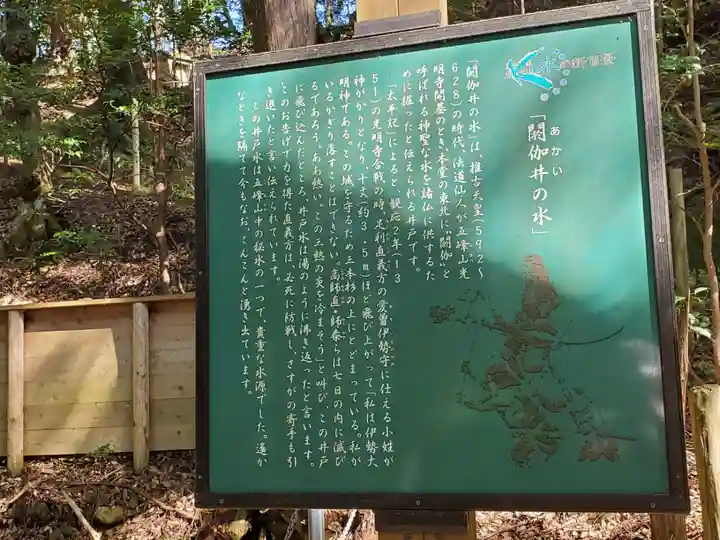 新百景
「閼伽井の水」
あかい
「閼伽井の水」は、推古天皇(592〜
628)の時代、法道仙人が五峰山光
明寺開基のとき、本堂の東北に"閼伽"と
呼ばれる神聖な水を諸仏に供するた
めに掘ったと伝えられる井戸です。
「太平記」によると、観応2年(13
51)の光明寺合戦の時、足利直義方の愛曽伊勢守に仕える小姓が
神がかりとなり、十丈(約3.5m)ほど飛び上がって「私は伊勢大
明神である。この城を守るため三本杉の上にとどまっている。私が
いるかぎり落すことはできない。高師直・師泰らは七日の内に滅び
るであろう。ああ熱い、この三熱の炎を冷まそう」と叫び、この井戸
に飛び込んだところ、井戸水は湯のように沸き返ったと言います。
このお告げに力を得た直義方は、必死に防戦し、さすがの寄手も引
き退いたと言い伝えられています。
この井戸水は五峰山中の湧水の一つで、貴重な水源でした。遙か
なときを隔てて今もなお、こんこんと湧き出ています。